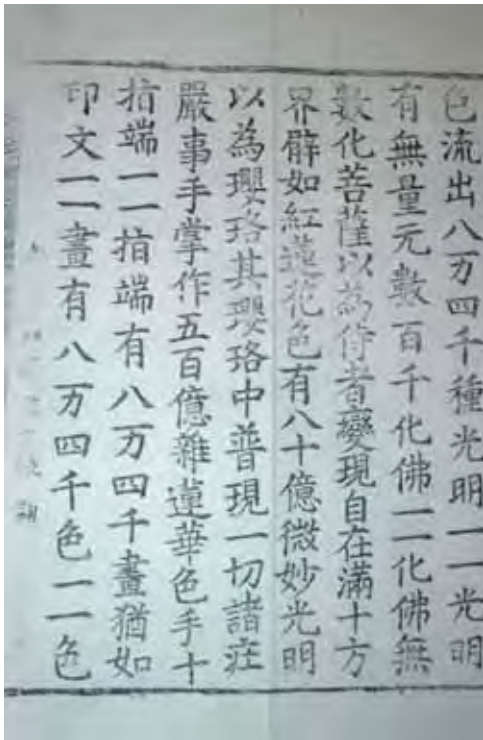 色流出八万四千種光明一一光明
有無量元數百千化佛一一化佛無
數化菩薩以為侍者變現自在滿十方
界臂如紅蓮花色有八十億微妙光明
以為瓔珞其瓔珞中普現一切諸庄
嚴事手掌作五百億雜蓮華色手十
指端一一指端有八万四千畫猶如
印文一一畫有八万四千色一一色